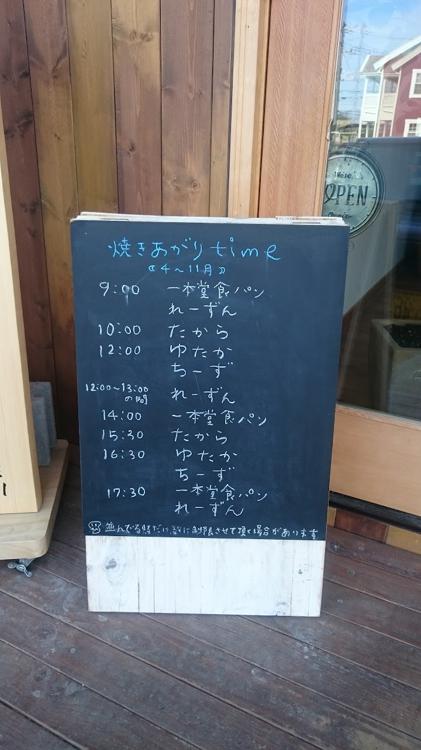 焼きあがり time
《4～11月》
9:00 一本堂食パン
れーずん
10:00 たから
12:00 ゆたか
ちーず
12:00～13:00の間 れーずん
14:00 一本堂食パン
15:30 たから
16:30 ゆたか
ちーず
17:30 一本堂食パン
れーずん
並んでる時だけ、数に制限させて頂く場合があります
We're
OPEN